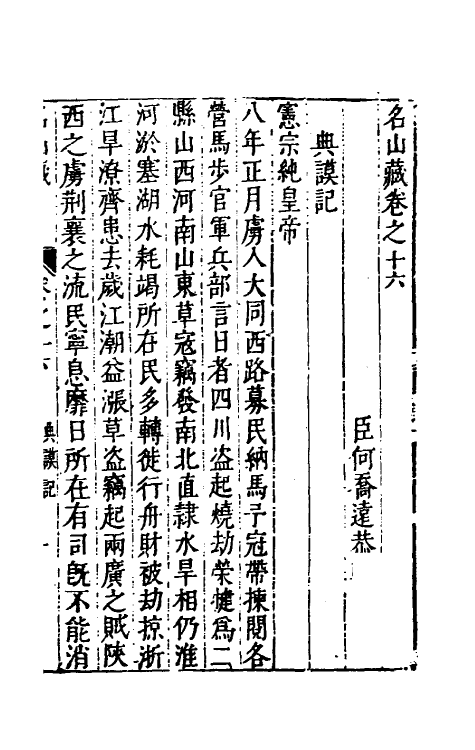 名山藏卷之十六
臣何喬遠恭
典謨記
憲宗純皇帝
八年正月虜入大同西路募民納馬予冠帶揀閱各
營馬步官軍兵部言日者四川盜起燒劫榮犍爲二
縣山西河南山東草寇竊發南北直隸水旱相仍淮
河淤塞湖水耗竭所在民多轉徙行舟財被劫掠浙
江旱潦齊患去歲江潮益漲草盜竊起兩廣之賊陝
西之虜荆襄之流民寧息靡日所在有司旣不能消
名山藏 卷之十六 典謨記 一